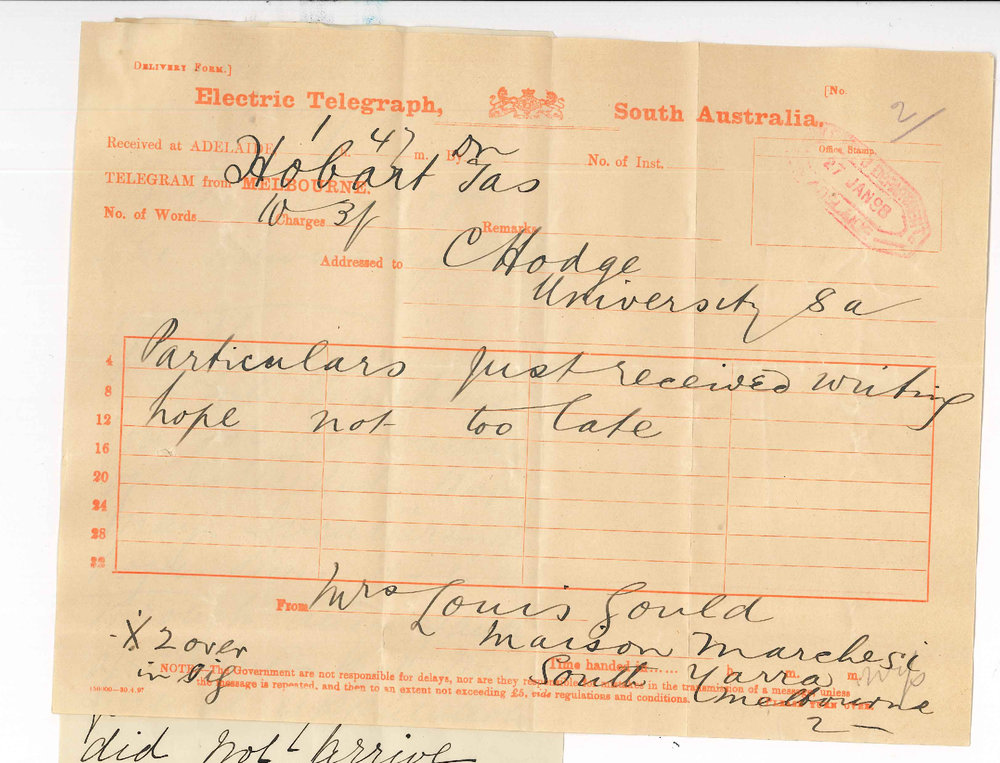 DELIVERY FORM.]
[No. 2/
Electric Telegraph, South Australia.
Office Stamp.
27 JAN 98
Received at ADELAIDE 1 h. 47 m. By Dn No. of Inst.
TELEGRAM from MELBOURNE. Hobart Tas
No. of Words 10 Charges 3/ Remarks
Addressed to C Hodge
University Sa
4 Particulars just received writing
8 hope not too late
12
16
20
24
28
32
From Mrs Louis Gould
Maison Marchesi
South Yarra
Melbourne
2
X 2 over
in sig
Time handed in h. m. m.
NOTE.—The Government are not responsible for delays, nor are they responsible for mistakes in the transmission of a message unless
the message is repeated, and then to an extent not exceeding £5, vide regulations and conditions. PLEASE TURN OVER.
150/100—30.4.97
did not arrive